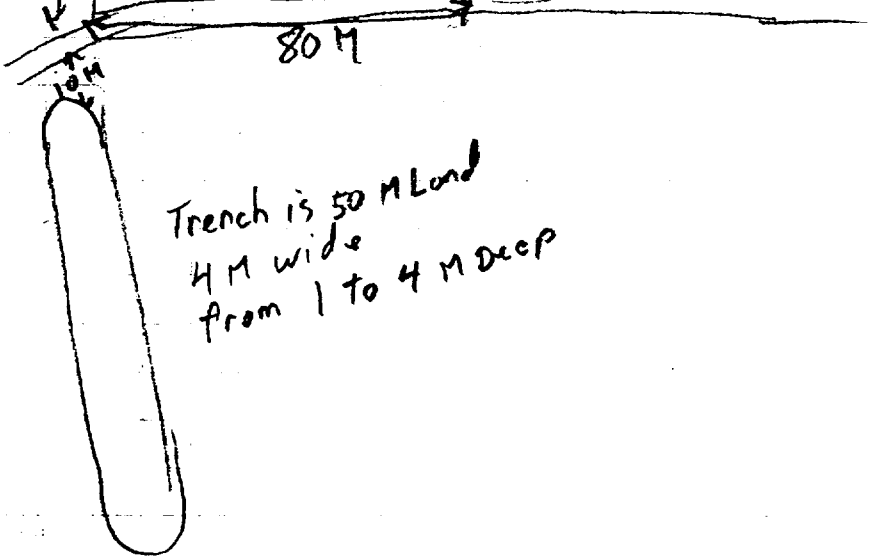 80 M
10 M
Trench is 50 M Lond
4 M wide
from 1 to 4 M Deep